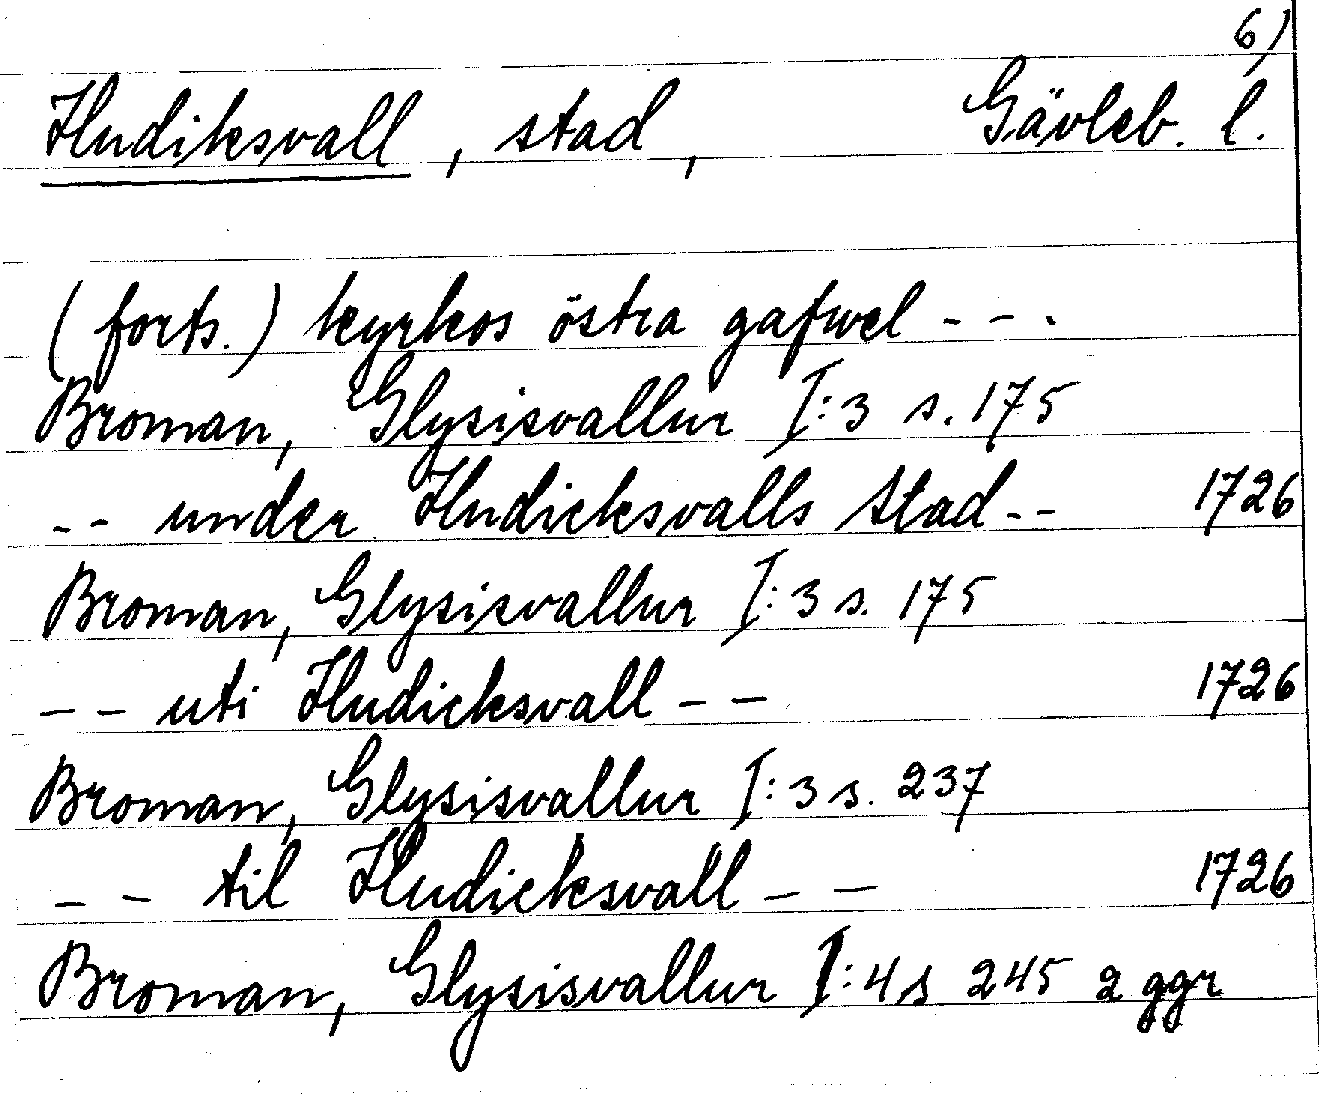 6)
Hudiksvall, stad, Gävleb. l.
(forts.) kyrkos östra gafwel - - -
Broman, Glysisvallur I:3 s. 175
-- under Hudicksvalls Stad -- 1726
Broman, Glysisvallur I:3 s. 175
-- uti Hudicksvall -- 1726
Broman, Glysisvallur I:3 s. 237
-- til Hudicksvall -- 1726
Broman, Glysisvallur I:4 s 245 2 ggr